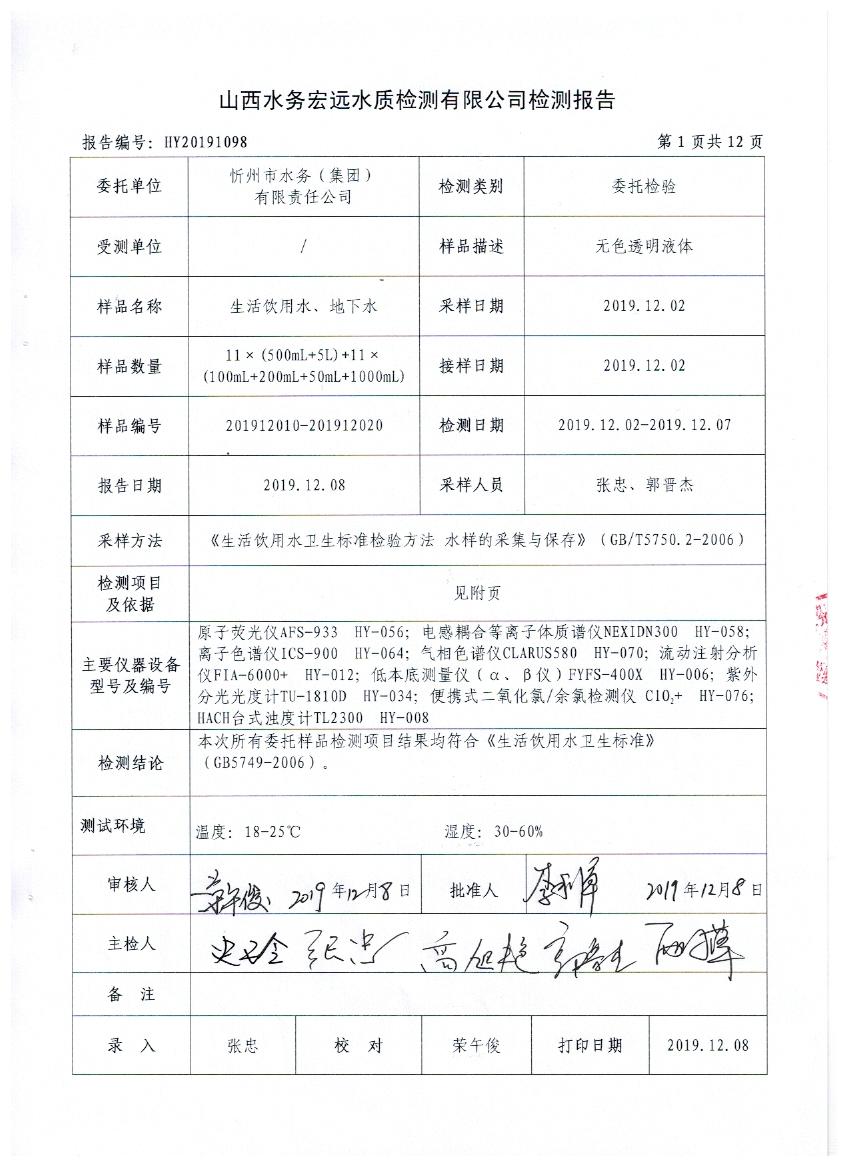 山西水务宏远水质检测有限公司检测报告
报告编号: HY20191098
第 1 页共 12 页
委托单位
忻州市水务(集团)
有限责任公司
检测类别
委托检验
受测单位
/
样品描述
无色透明液体
样品名称
生活饮用水、地下水
采样日期
2019.12.02
样品数量
11×(500mL+5L)+11×
(100mL+200mL+50mL+1000mL)
接样日期
2019.12.02
样品编号
201912010-201912020
检测日期
2019.12.02-2019.12.07
报告日期
2019.12.08
采样人员
张忠、郭晋杰
采样方法
《生活饮用水卫生标准检验方法 水样的采集与保存》(GB/T5750.2-2006)
检测项目
及依据
见附页
主要仪器设备
型号及编号
原子荧光仪AFS-933 HY-056; 电感耦合等离子体质谱仪NEXIDN300 HY-058;
离子色谱仪ICS-900 HY-064; 气相色谱仪CLARUS580 HY-070; 流动注射分析
仪FIA-6000+ HY-012; 低本底测量仪(α、β仪)FYFS-400X HY-006; 紫外
分光光度计TU-1810D HY-034; 便携式二氧化氯/余氯检测仪 ClO₂+ HY-076;
HACH台式浊度计TL2300 HY-008
检测结论
本次所有委托样品检测项目结果均符合《生活饮用水卫生标准》
(GB5749-2006)。
测试环境
温度: 18-25℃
湿度: 30-60%
审核人
荣午俊 2019年12月8日
批准人
2019年12月8日
主检人
张忠 高旭艳
备 注
录 入
张忠
校 对
荣午俊
打印日期
2019.12.08